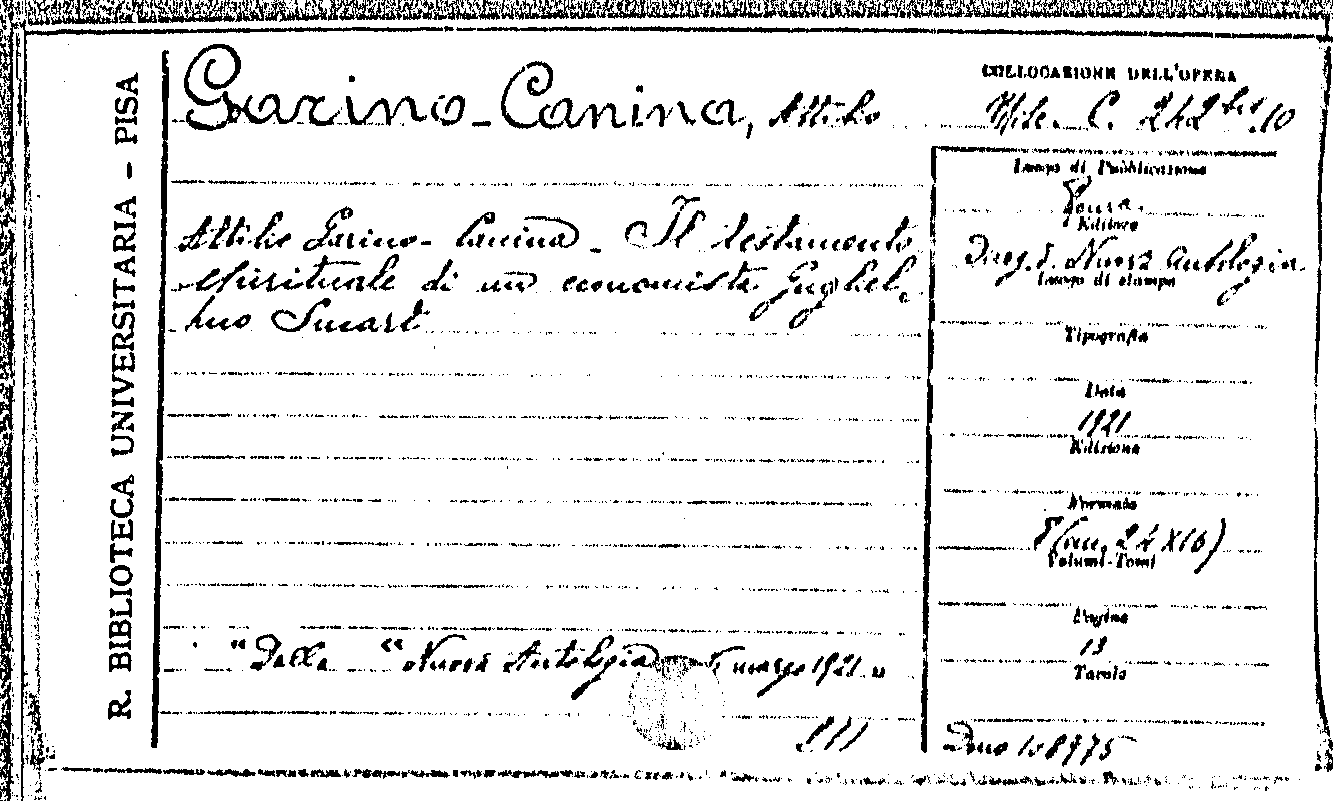 R. BIBLIOTECA UNIVERSITARIA - PISA
Garino-Canina, Attilio
COLLOCAZIONE DELL'OPERA
Misc. C. 242 bis.10
Attilio Garino-Canina - Il testamento
spirituale di un economista Gugliel-
mo Smart
"Dalla "Nuova Antologia marzo 1921 "
Luogo di Pubblicazione
Roma.
Editore
Nuova Antologia
Luogo di stampa
Tipografia
Data
1921
Edizione
Formato
8 (cm. 24 X 16)
Volumi-Tomi
Pagine
13
Tavole
Dono 108975